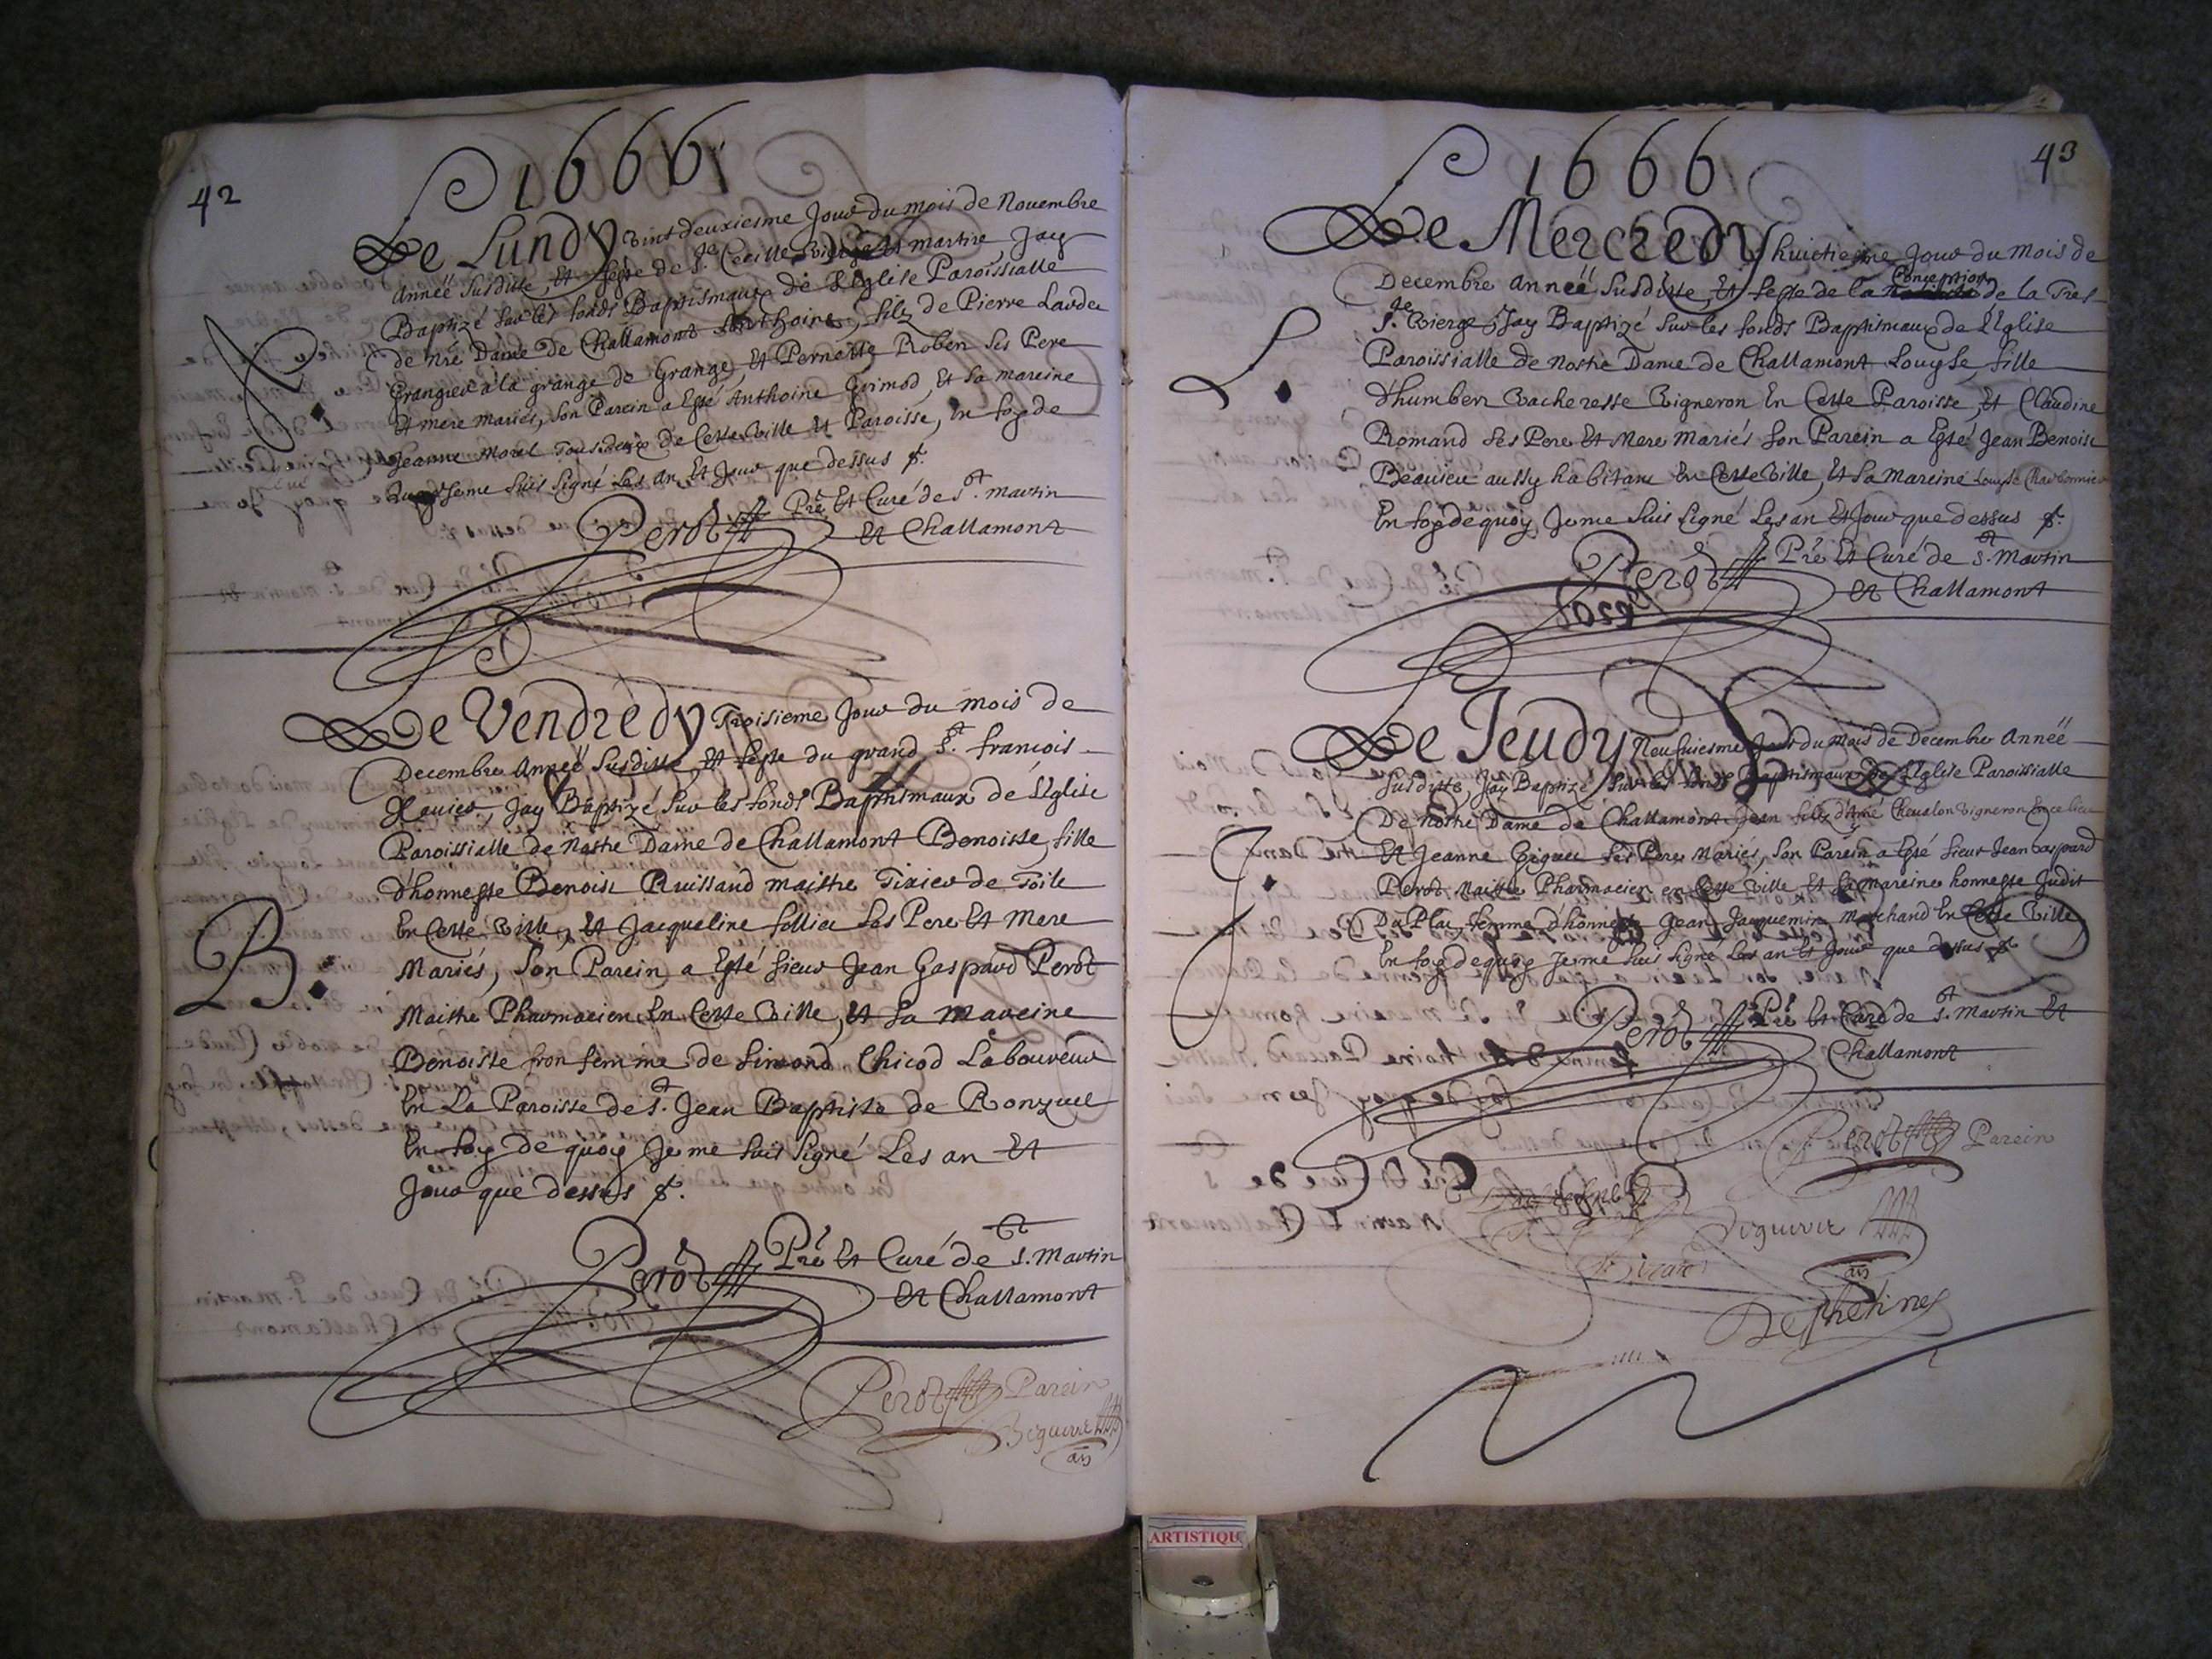 42
1666
Le Lundy vint deuxiesme Jour du mois de Novembre
Année Susditte, Et feste de Ste Cecille Vierge Et martire Jay
Baptizé sur les fonds Baptismaux de L'Eglise Paroissialle
de nre Dame de Challamont Anthoine, filz de Pierre Lardet
Granger a la grange de Grange, Et Pernette Roben ses Pere
Et mere mariés, son Parein a Esté Anthoine Grimod, Et sa mareine
Jeanne Morel Tous deux de Cette ville Et Paroisse, En foy de
quoy Je me suis signé Les An Et Jour que dessus
A.
Perot Pre Et Curé de St. martin
Et Challamont
Le Vendredy Troisieme Jour du mois de
Decembre Année Susditte, Et feste du grand St. francois
Xavier, Jay Baptizé sur les fonds Baptismaux de L'Eglise
Paroissialle de nostre Dame de Challamont Benoiste, fille
d'honneste Benoist Ruissand maistre Tixier de Toile
En Cette Ville, Et Jacqueline follier ses Pere Et Mere
B.
Mariés, Son Parein a Esté sieur Jean Gaspard Perot
Maistre Pharmacien En Cette Ville, Et sa mareine
Benoiste fron femme de Simond Chicod Laboureur
En La Paroisse de St. Jean Baptiste de Ronzuel
En foy de quoy Je me suis signé Les an Et
Jour que dessus
Perot Pre Et Curé de St. Martin
Et Challamont
Perot Parein
Beguivre
43
1666
Le Mercredy huictiesme Jour du Mois de
Decembre Année Susditte, Et feste de la Conception de la Tres
Ste Vierge, Jay Baptizé sur les fonds Baptismaux de L'Eglise
L.
Paroissialle de Nostre Dame de Challamont Louyse, fille
d'humbert Vacheresse Vigneron En Cette Paroisse, Et Claudine
Romand ses Pere Et Mere Mariés son Parein a Esté Jean Benoist
Beausieu aussy habitant En Cette Ville, Et sa Mareine Louyse Charbonnier
En foy de quoy Je me suis signé Les an Et Jour que dessus
Perot Pre Et Curé de St. Martin
Et Challamont
Le Jeudy Neufviesme Jour du Mois de Decembre Année
Susditte, Jay Baptizé sur les fonds Baptismaux de L'Eglise Paroissialle
De Nostre Dame de Challamont Jean filz d'Aimé Chevalon Vigneron En ce lieu
J.
Et Jeanne Giguet ses Peres Mariés, Son Parein a Esté sieur Jean Gaspard
Perot Maistre Pharmacien en Cette Ville Et sa Mareine honneste Judit
Du Plat, femme d'honneste Jean Jacquemin Marchand En Cette Ville
En foy de quoy Je me suis signé Les an Et Jour que dessus
Perot Pre Et Curé de St. Martin Et
Challamont
Perot Parein
Beguivre
Dephelines
ARTISTIQU